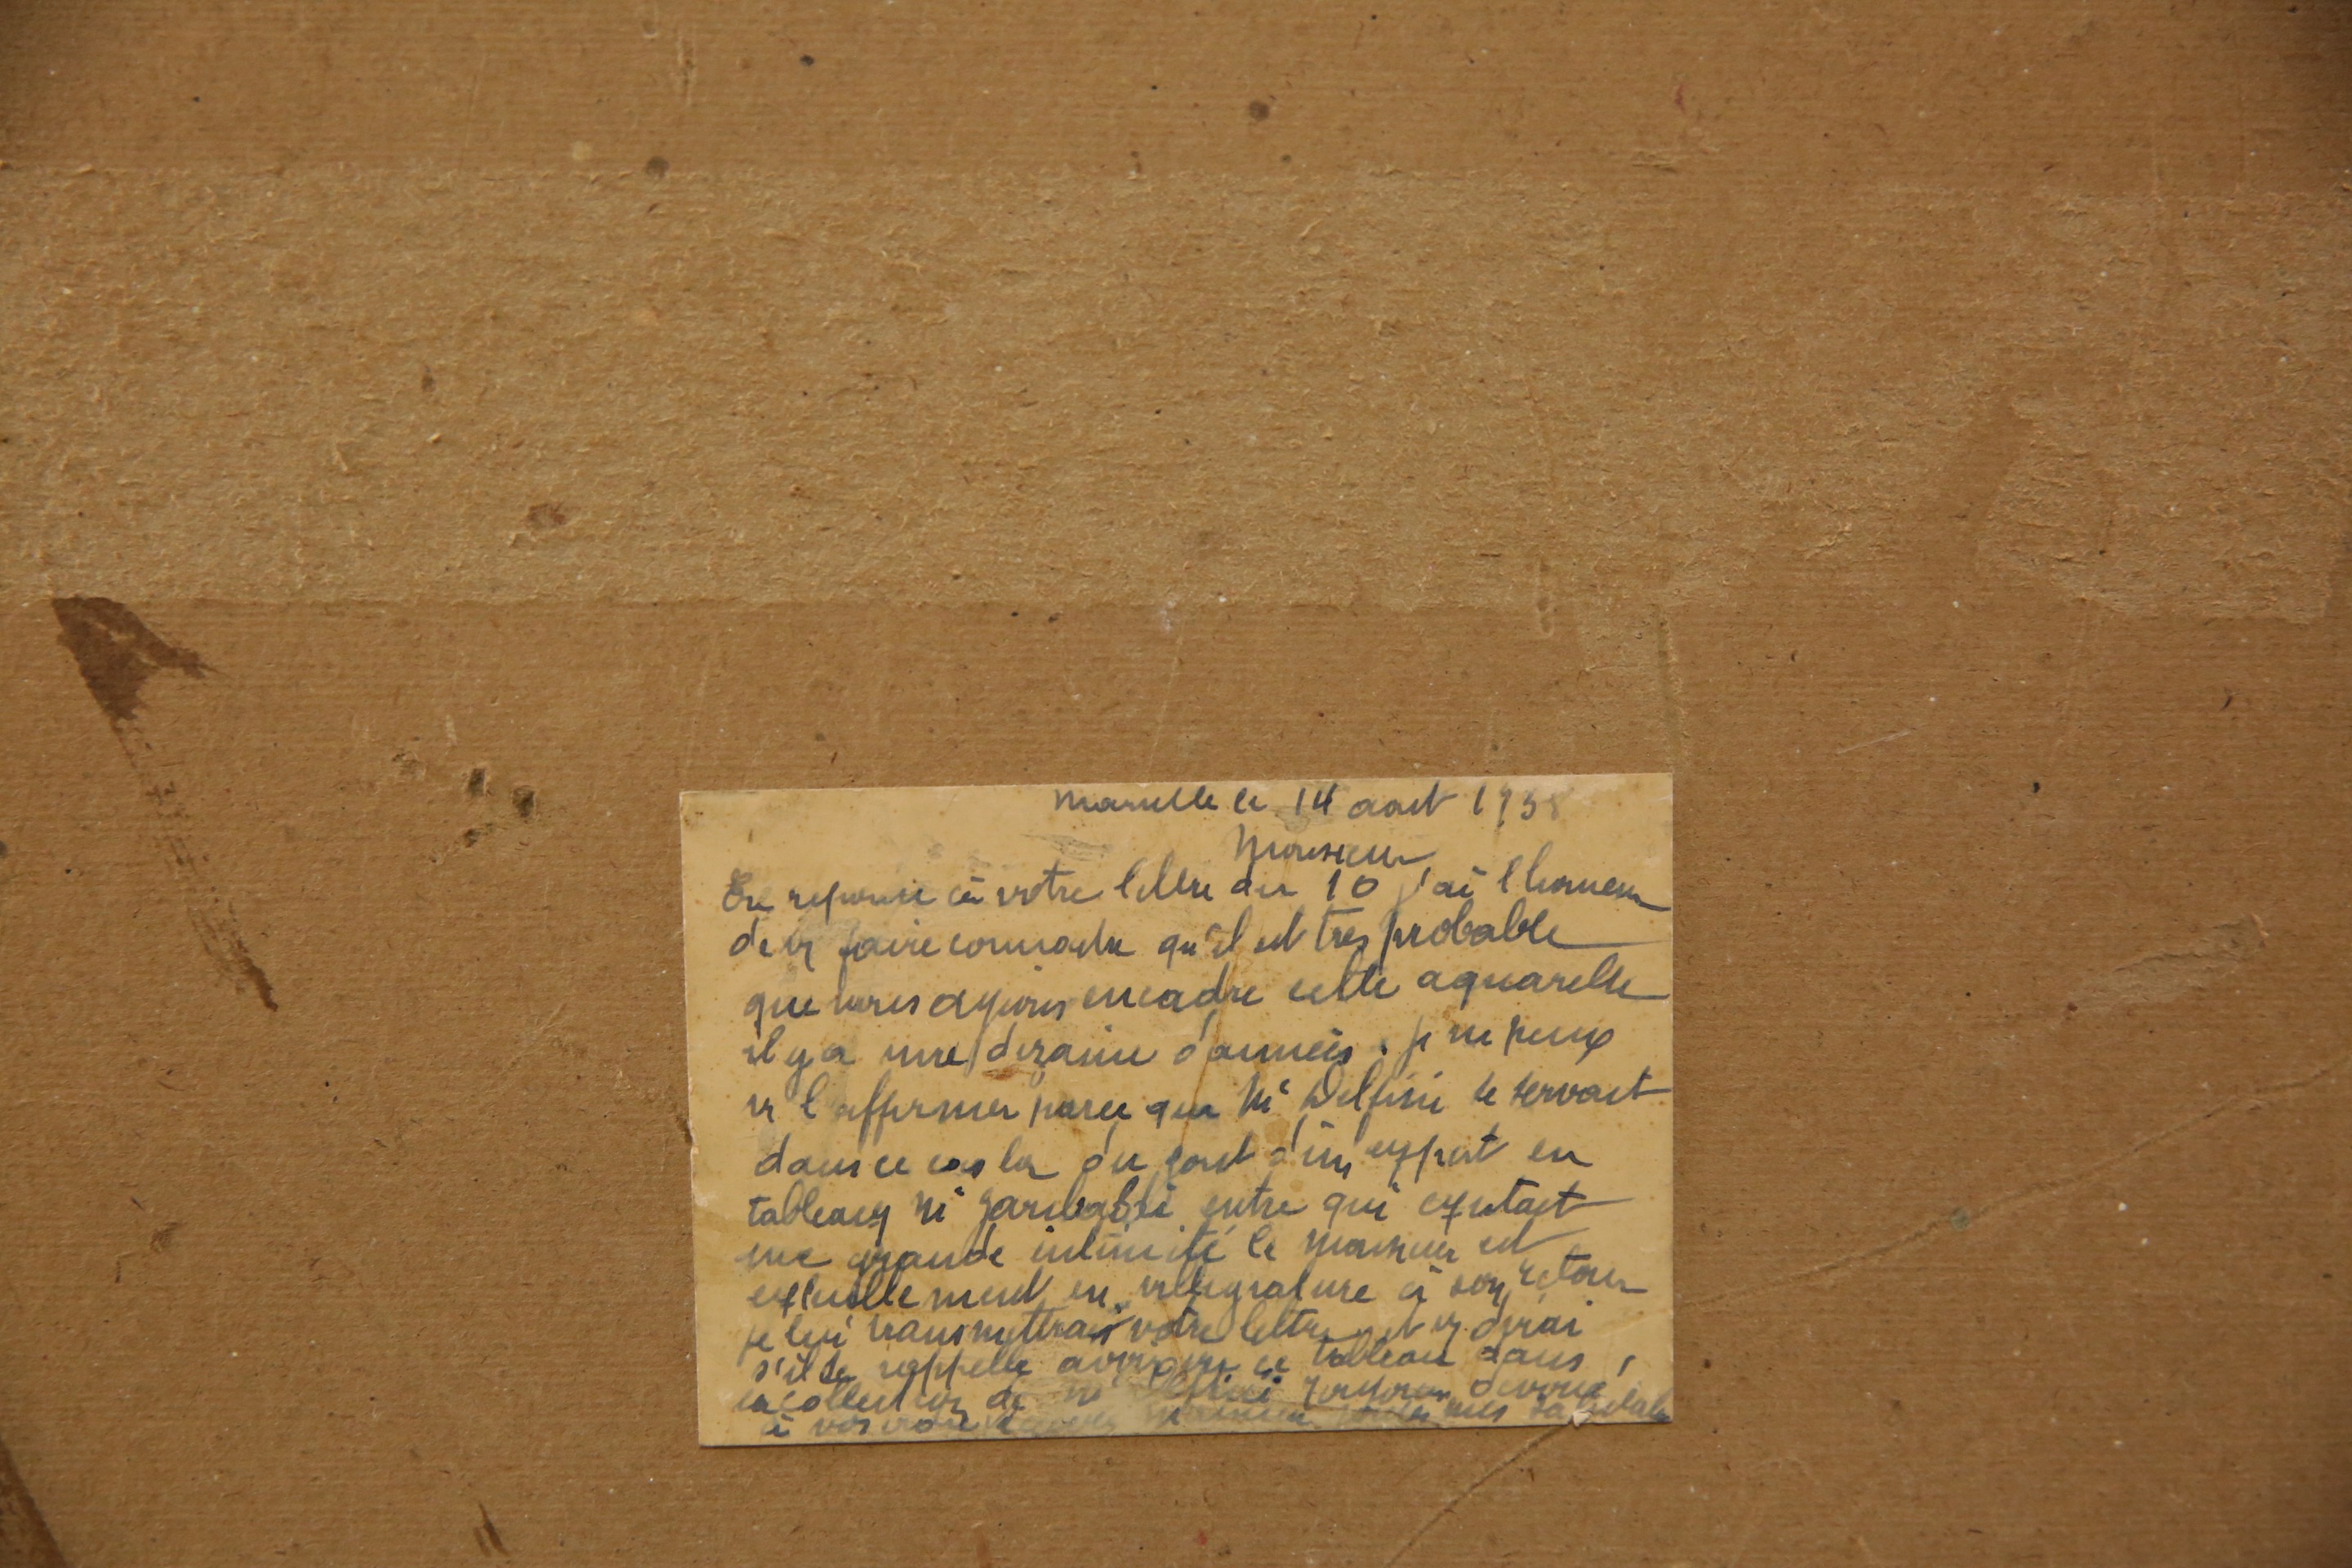 Marseille le 14 aout 193
Monsieur
En reponse à votre lettre du 10 j'ai l'honneur
de vs faire connaitre qu'il est tres probable
que nous ayions encadre cette aquarelle
il y a une dizaine d'années. je ne peux
vs l'affirmer parce que Mr Delfini se servait
dans ce cas la du gout d'un expert en
tableaux Mr Garibaldi entre qui existait
une grande intimité le Monsieur est
en villegiature à son retour
je lui transmettrais votre lettre et vs dirai
s'il se rappelle avoir vu ce tableau dans
la collection de Mr Delfini toujours devoué
à vos Monsieur mes